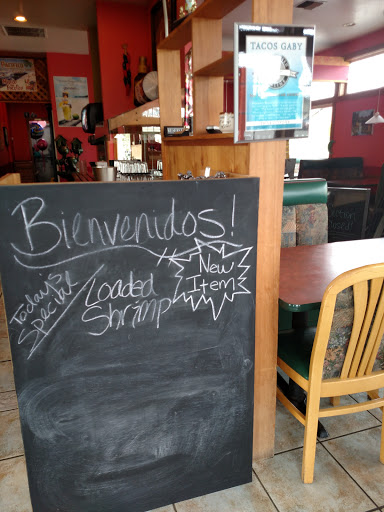 TACOS GABY
Bienvenidos!
Today's
Special
Loaded
Shrimp
New
Item